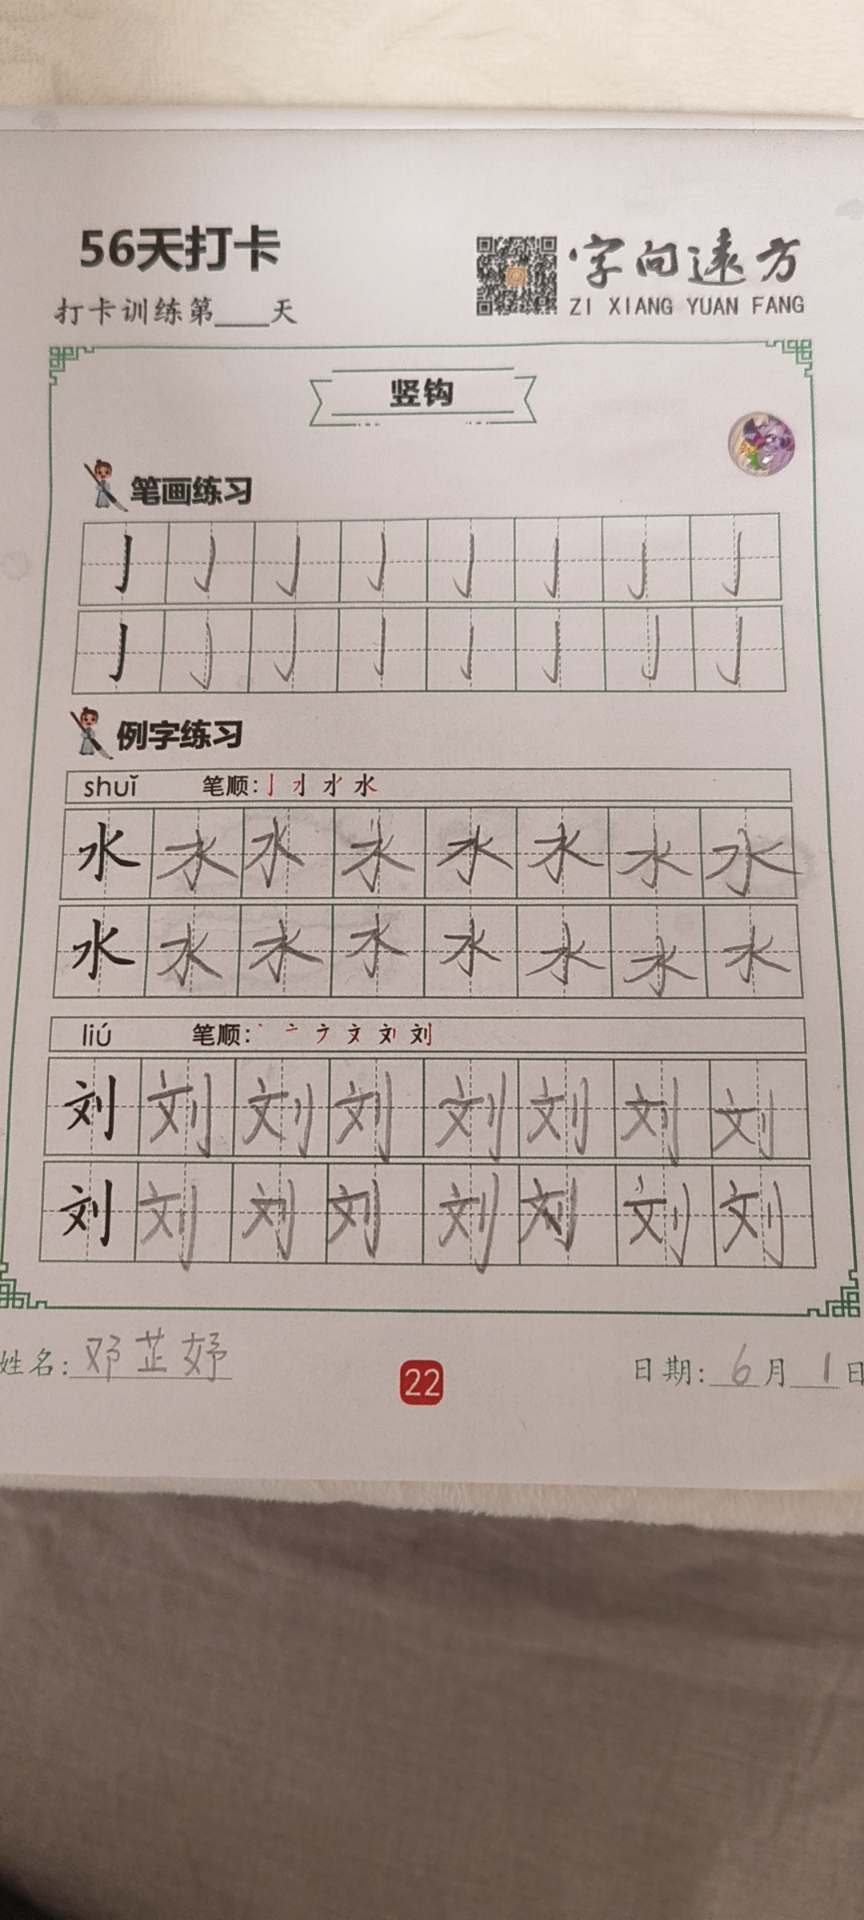 56天打卡
字向遠方
打卡训练第____天
ZI XIANG YUAN FANG
竖钩
笔画练习
亅亅亅亅亅亅亅亅
亅亅亅亅亅亅亅亅
例字练习
shuǐ 笔顺：亅 水
水水水水水水水水
水水水水水水水水
liú 笔顺：丶 亠 文 刘
刘刘刘刘刘刘刘刘
刘刘刘刘刘刘刘刘
姓名：邓芷妤 22 日期：6月1日